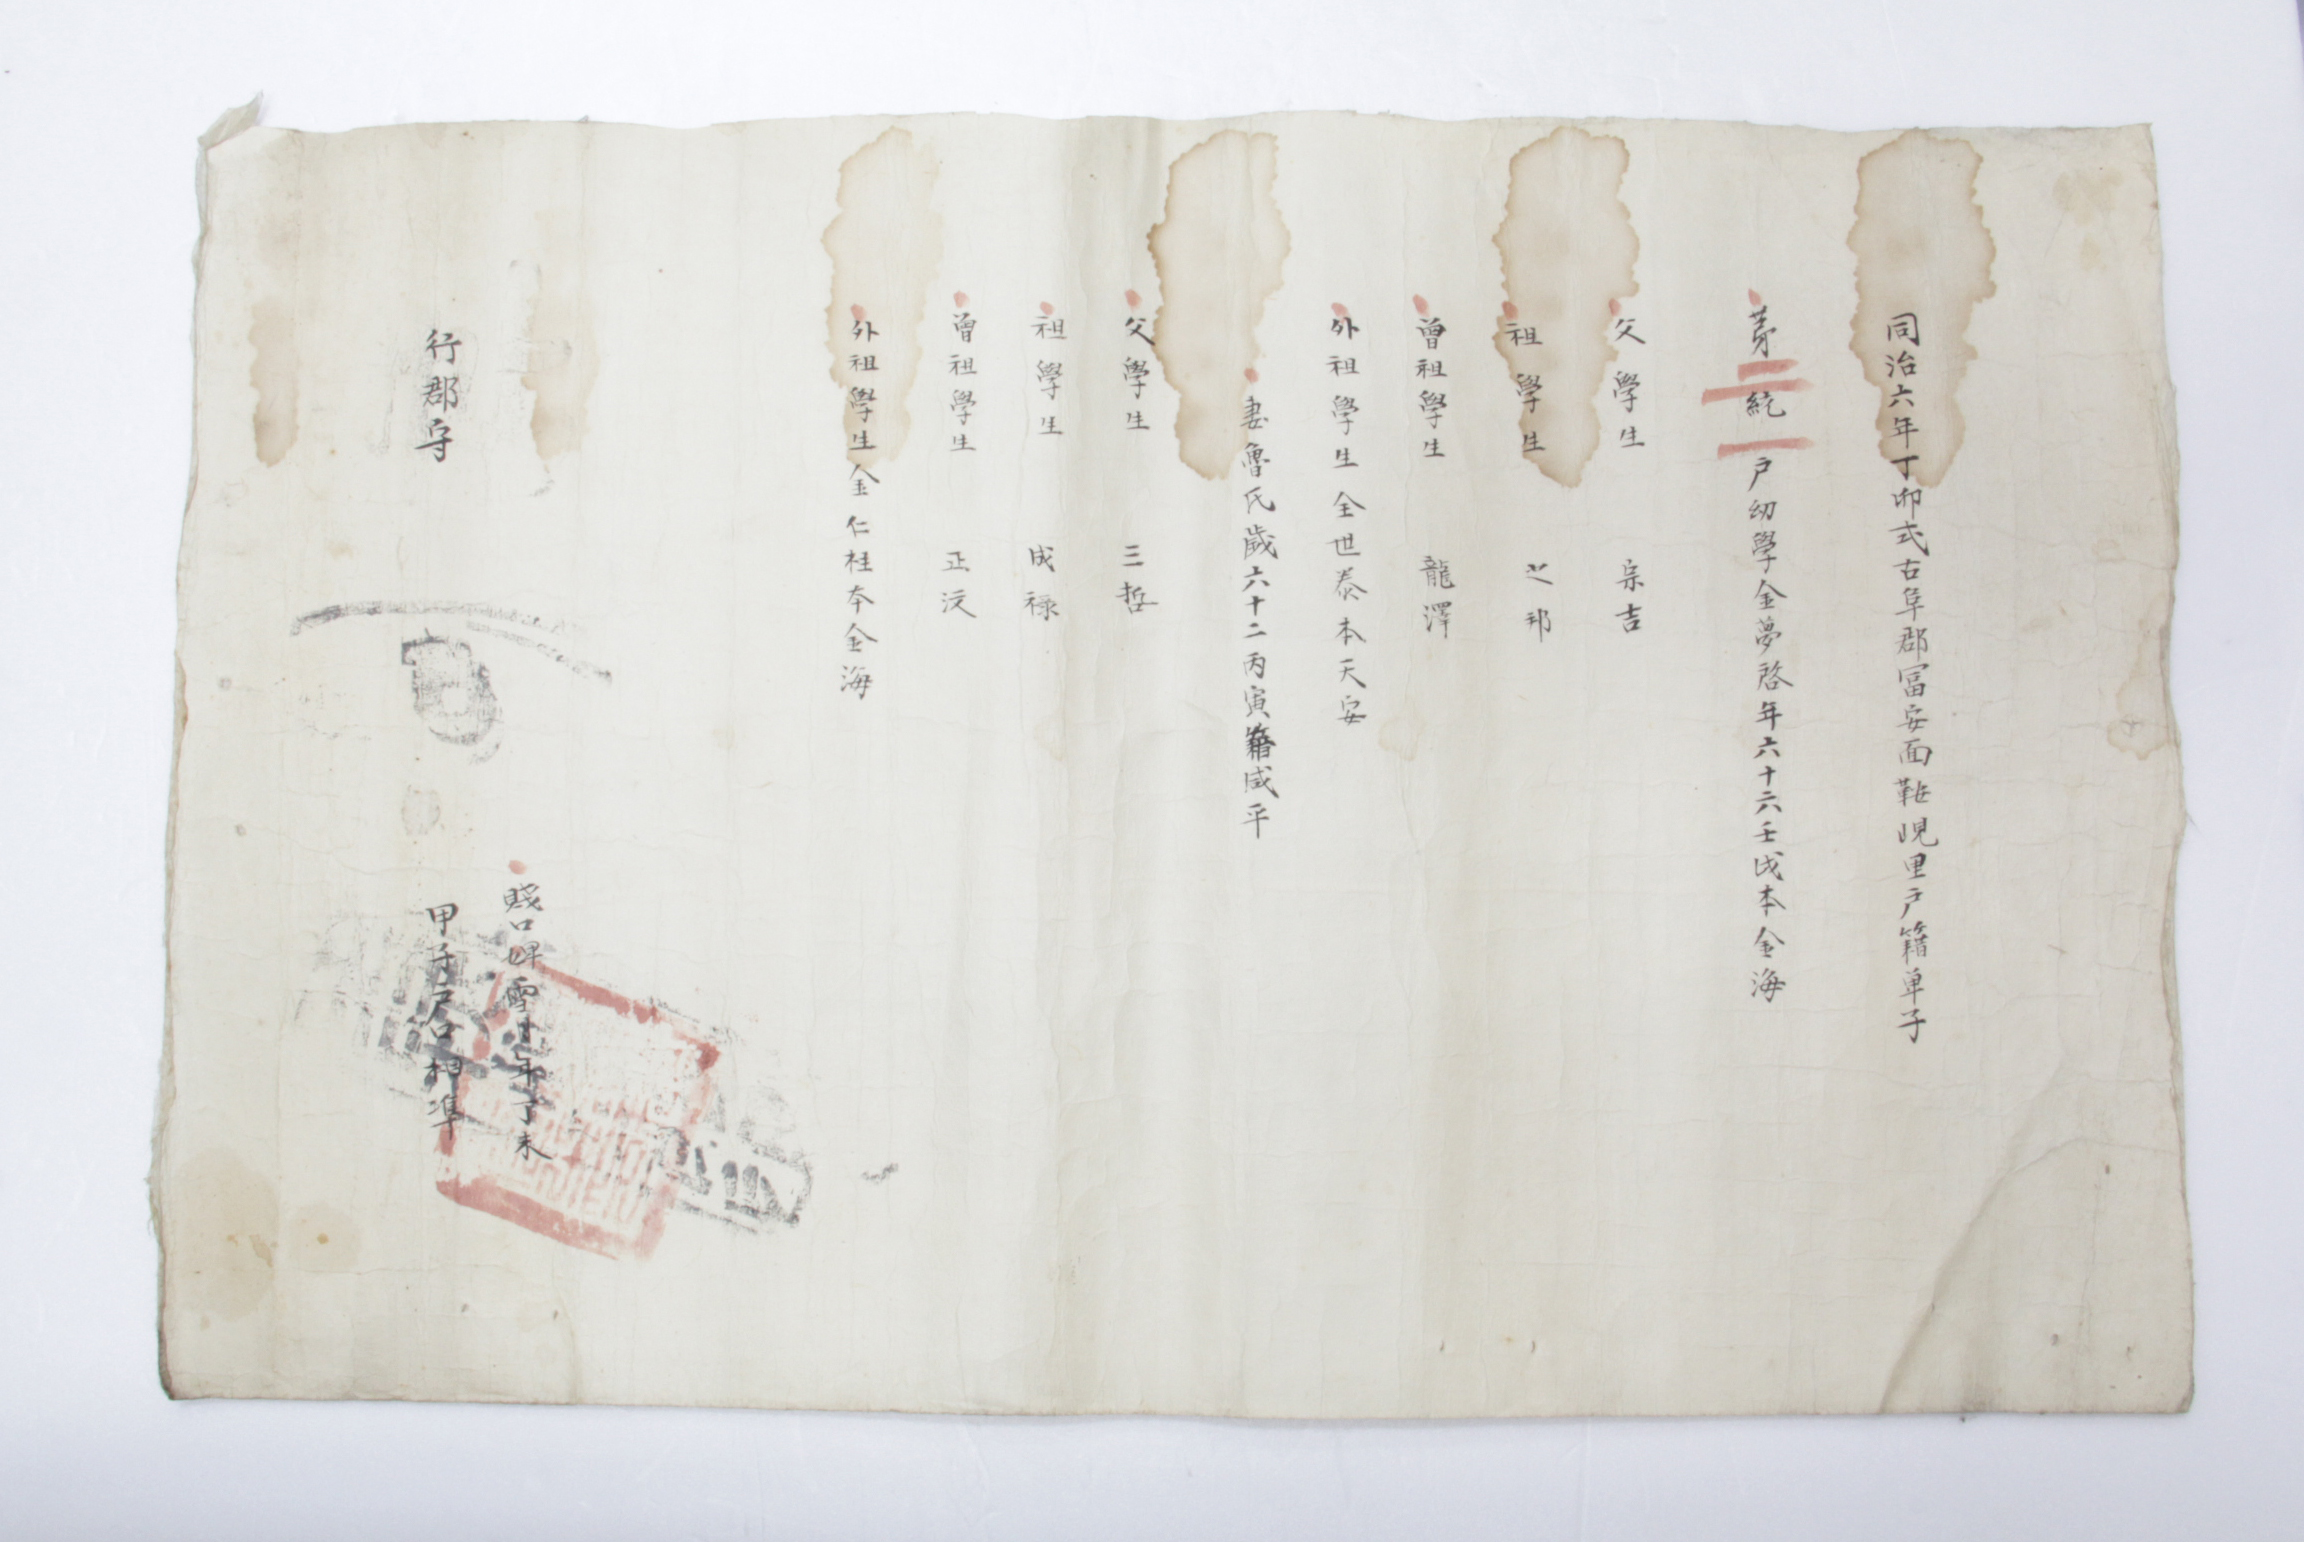 同治六年丁卯式古阜郡冨安面鞍峴里戶籍单子
苐二統一戶幼學金夢啓年六十六壬戌本金海
父學生宗吉
祖學生之邦
曾祖學生龍澤
外祖學生全世泰本天安
妻魯氏歲六十二丙寅籍咸平
父學生三哲
祖學生成祿
曾祖學生正汶
外祖學生金仁桂本金海
賤口婢雪廿年丁未
行郡守
甲子戶口相準